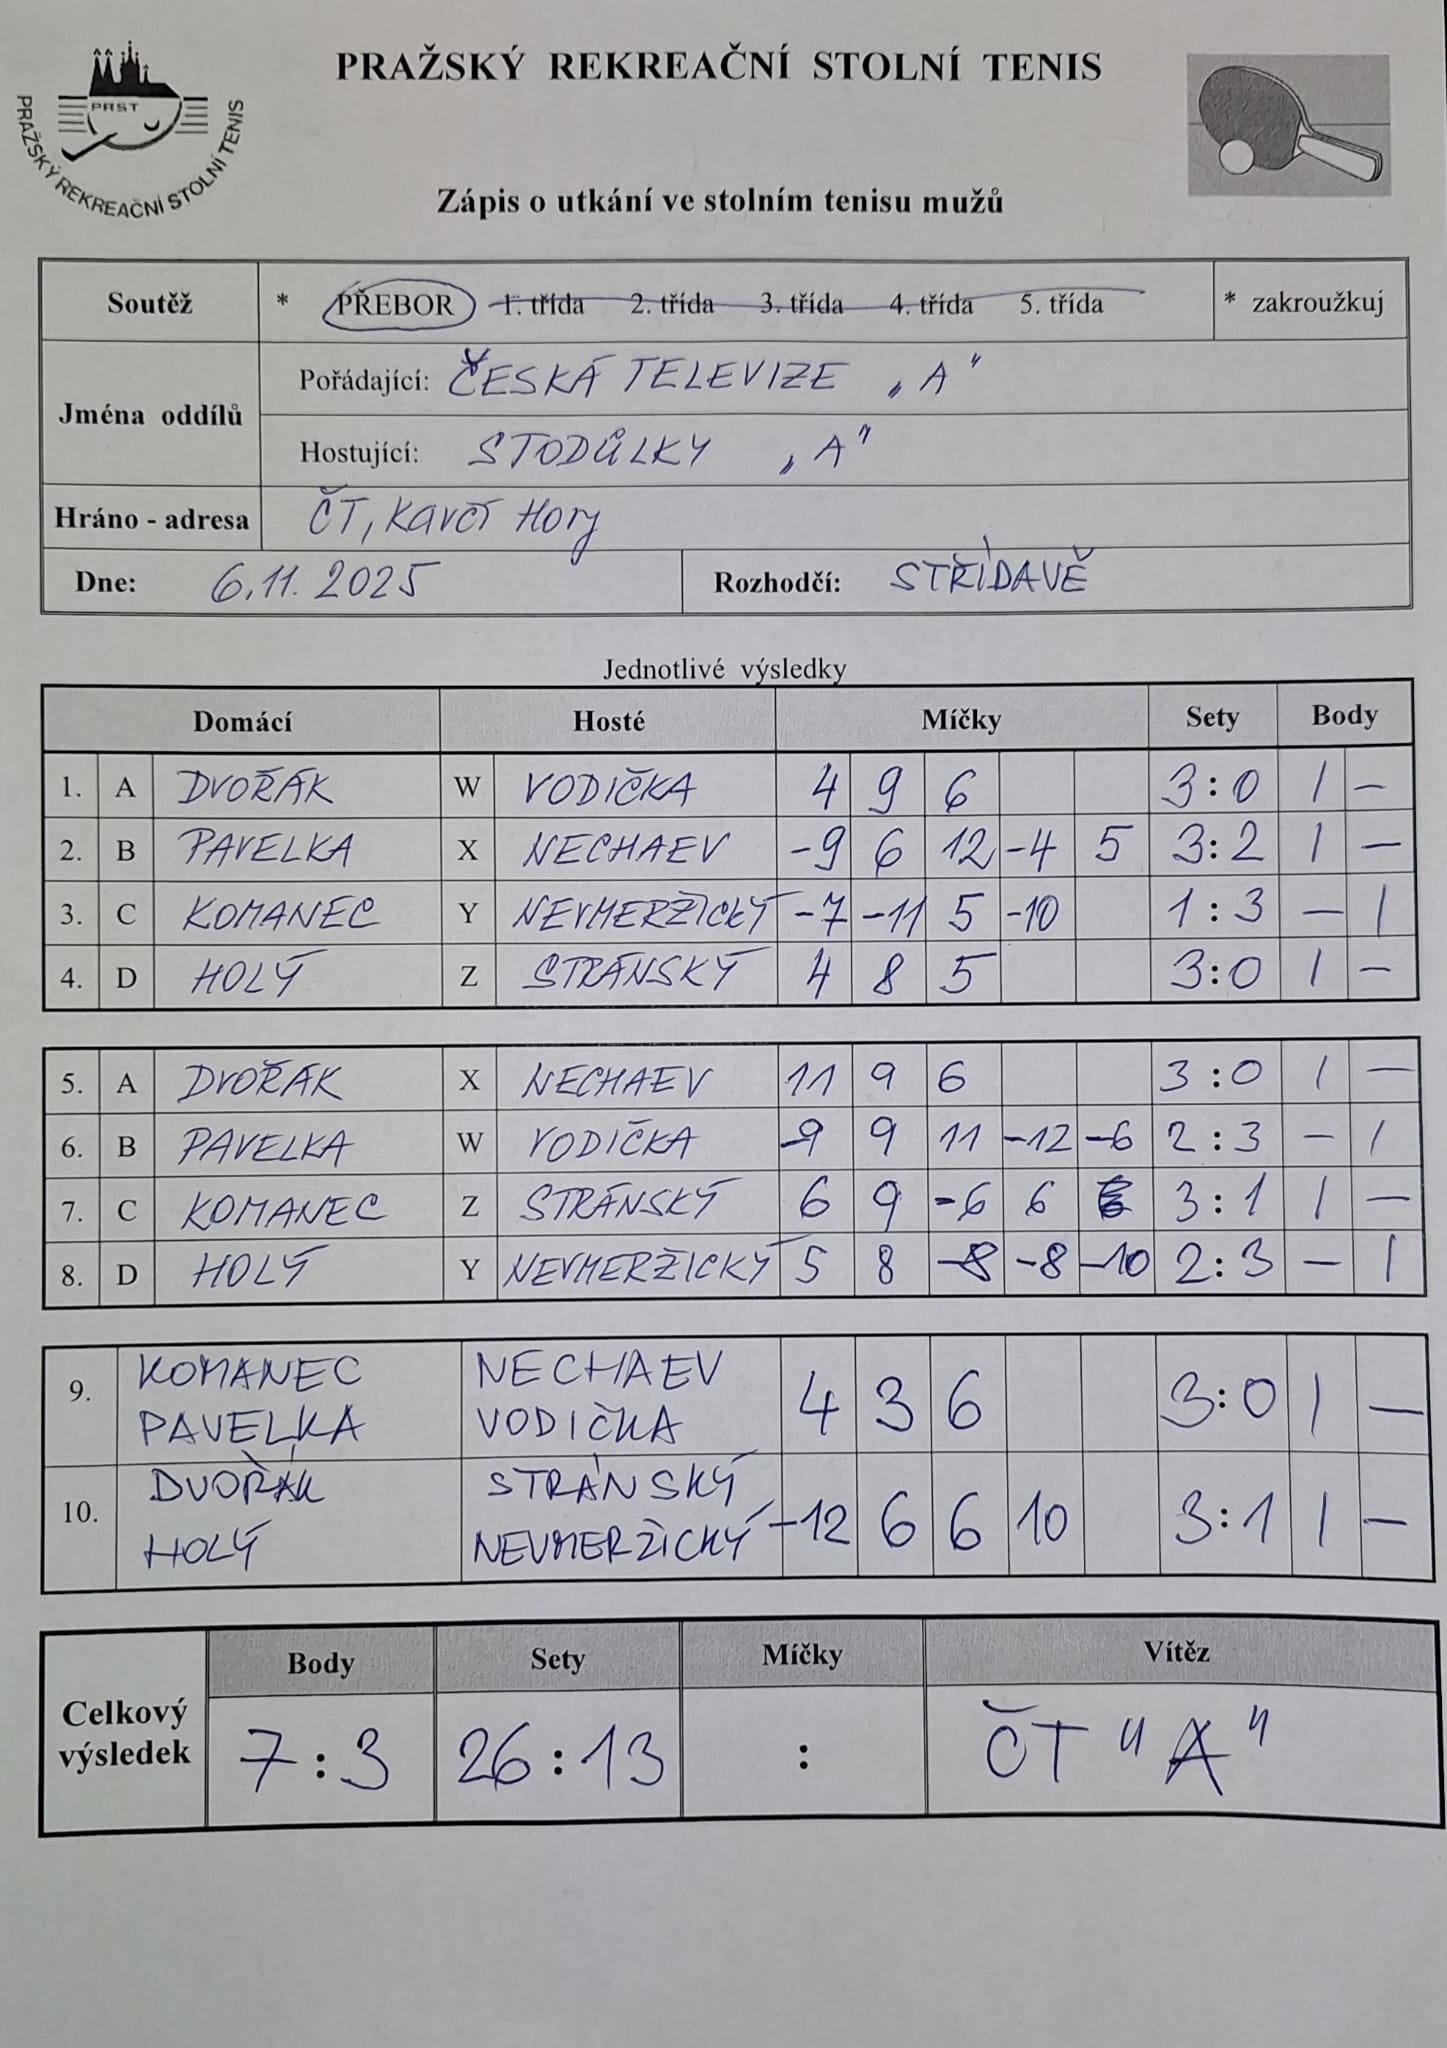 PRAŽSKÝ REKREAČNÍ STOLNÍ TENIS
PRST
PRAŽSKÝ REKREAČNÍ STOLNÍ TENIS
Zápis o utkání ve stolním tenisu mužů
Soutěž * PŘEBOR 1. třída 2. třída 3. třída 4. třída 5. třída * zakroužkuj
Jména oddílů
Pořádající: ČESKÁ TELEVIZE „A"
Hostující: STODŮLKY „A"
Hráno - adresa ČT, Kavčí Hory
Dne: 6.11.2025 Rozhodčí: STŘÍDAVĚ
Jednotlivé výsledky
Domácí Hosté Míčky Sety Body
1. A DVOŘÁK W VODIČKA 4 9 6 3:0 1 –
2. B PAVELKA X NECHAEV -9 6 12 -4 5 3:2 1 –
3. C KOMANEC Y NEVMERŽICKÝ -7 -11 5 -10 1:3 – 1
4. D HOLÝ Z STRÁNSKÝ 4 8 5 3:0 1 –
5. A DVOŘÁK X NECHAEV 11 9 6 3:0 1 –
6. B PAVELKA W VODIČKA -9 9 11 -12 -6 2:3 – 1
7. C KOMANEC Z STRÁNSKÝ 6 9 -6 6 3:1 1 –
8. D HOLÝ Y NEVMERŽICKÝ 5 8 -8 -8 -10 2:3 – 1
9. KOMANEC NECHAEV 4 3 6 3:0 1 –
PAVELKA VODIČKA
10. DVOŘÁK STRÁNSKÝ -12 6 6 10 3:1 1 –
HOLÝ NEVMERŽICKÝ
Celkový výsledek
Body Sety Míčky Vítěz
7:3 26:13 : ČT "A"